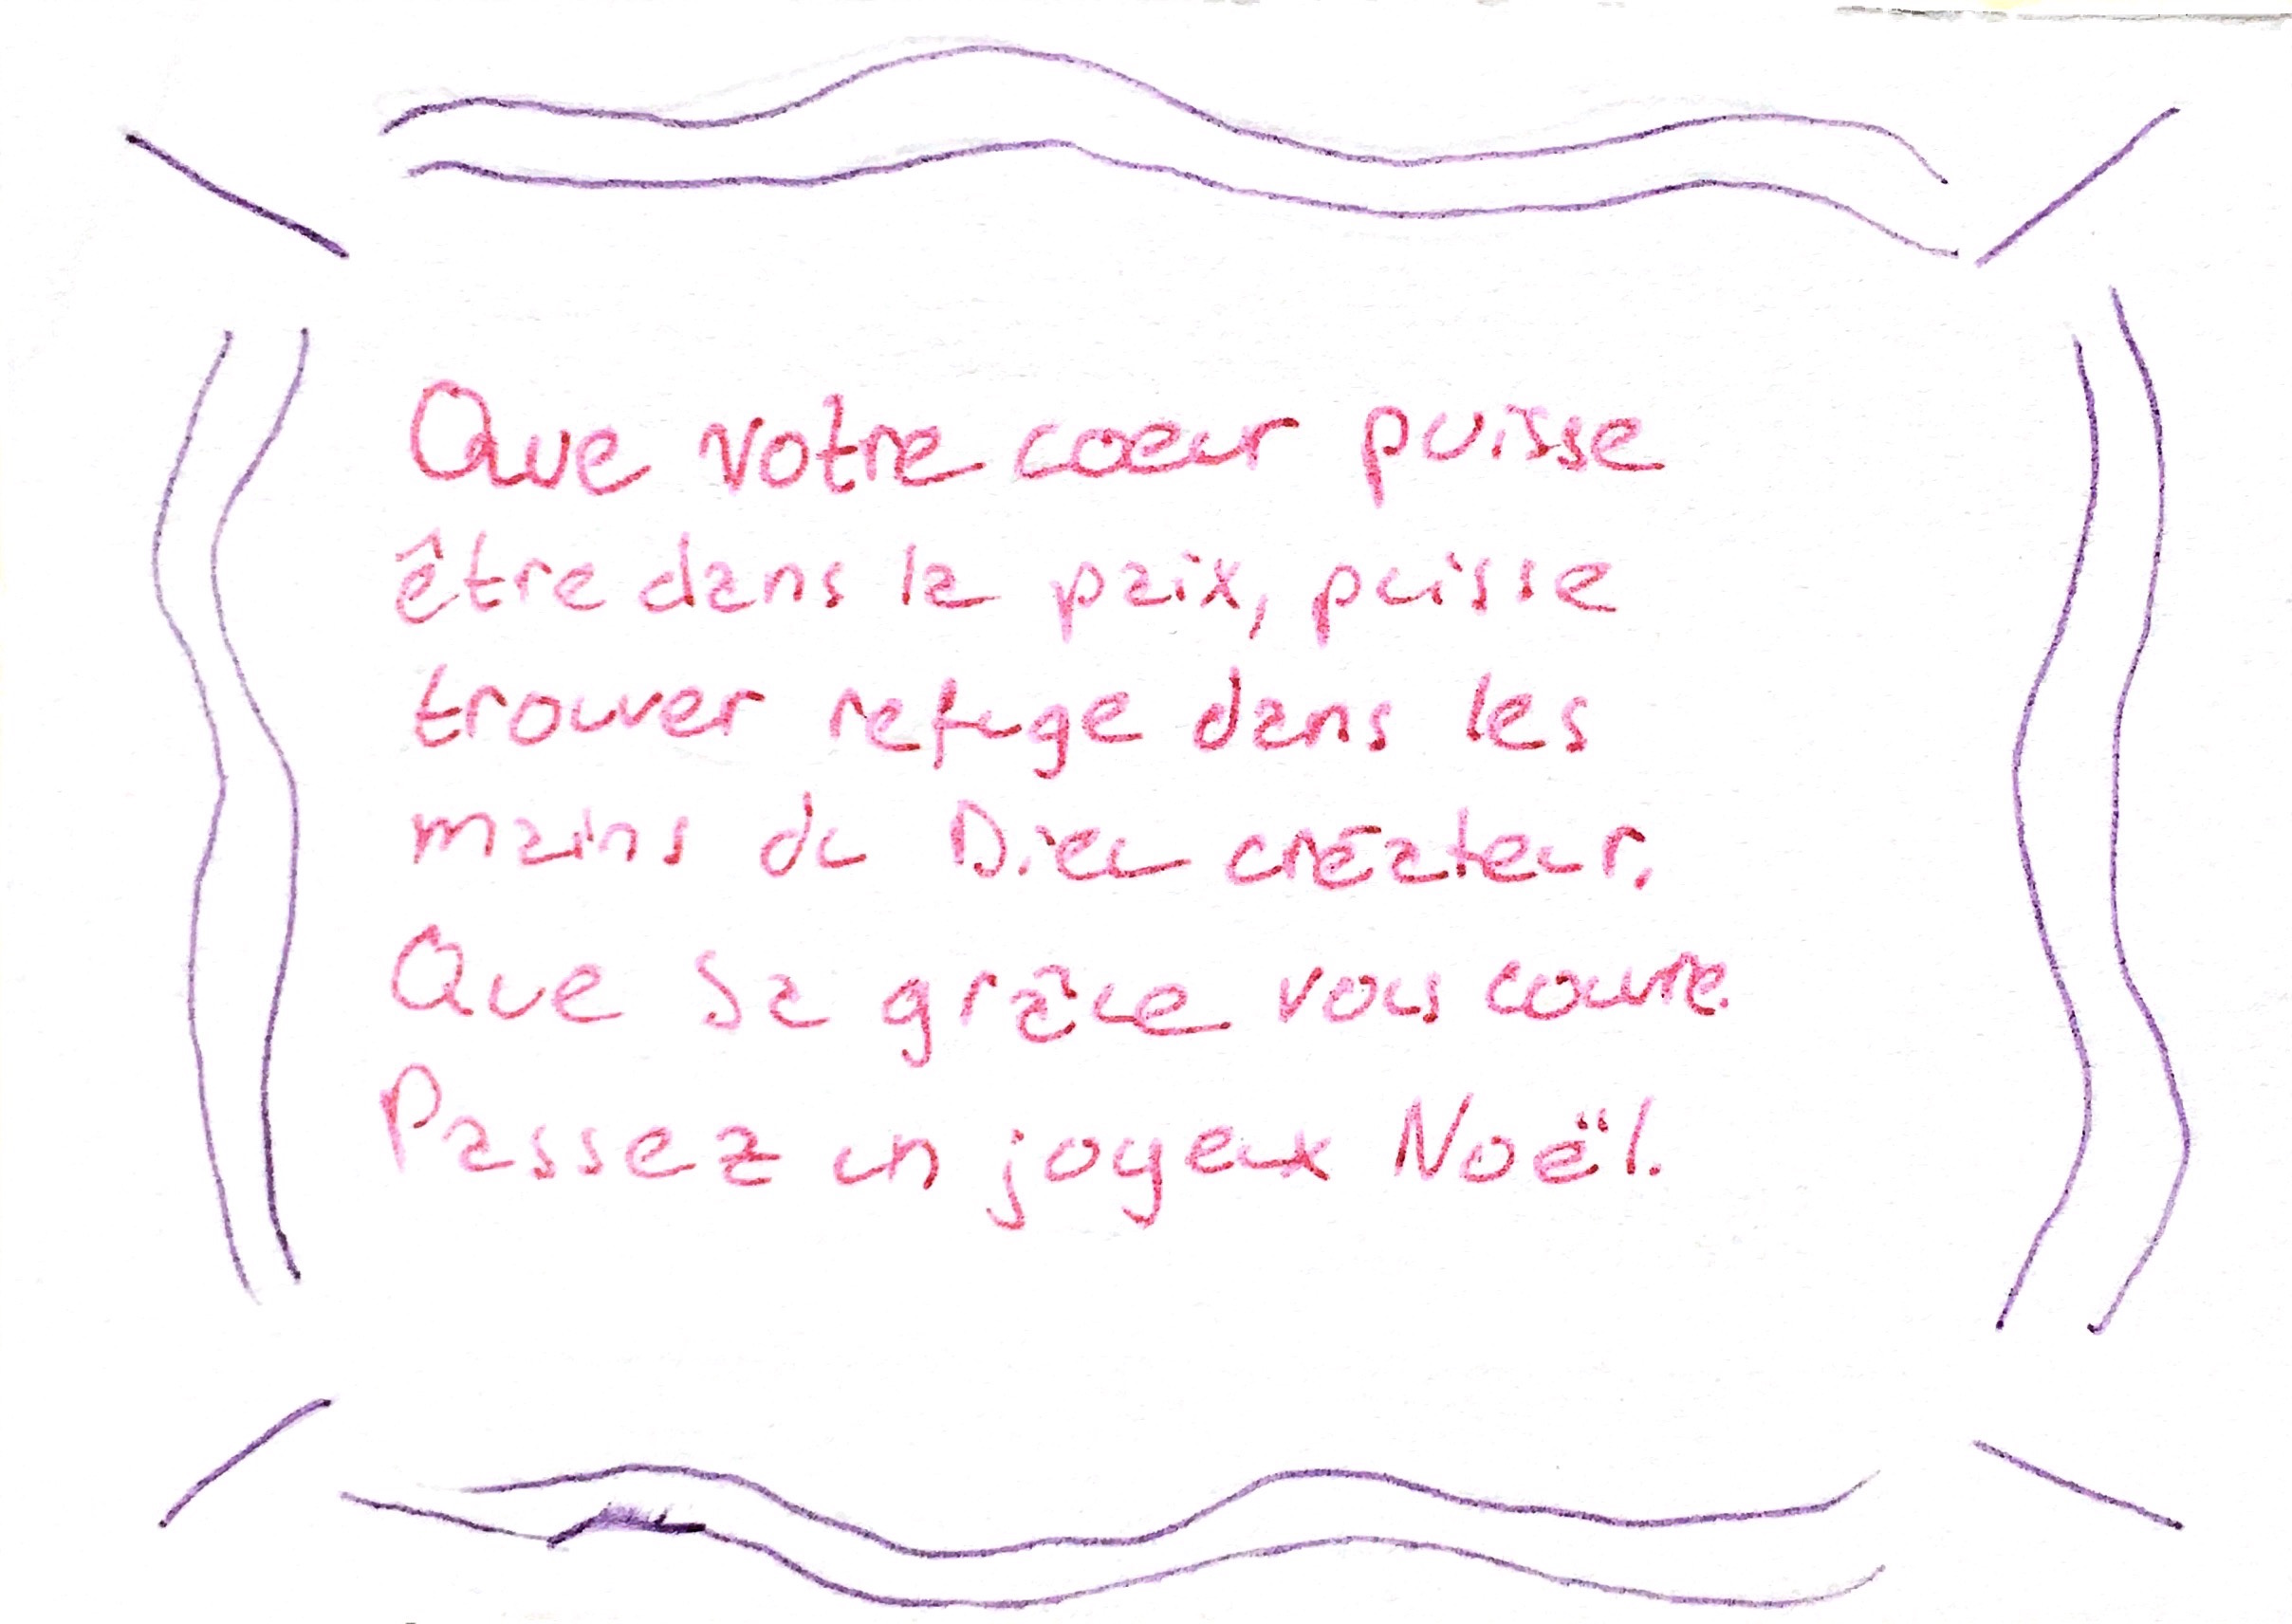 Que votre coeur puisse
être dans la paix, puisse
trouver refuge dans les
mains du Dieu créateur.
Que Sa grâce vous couvre.
Passez un joyeux Noël.